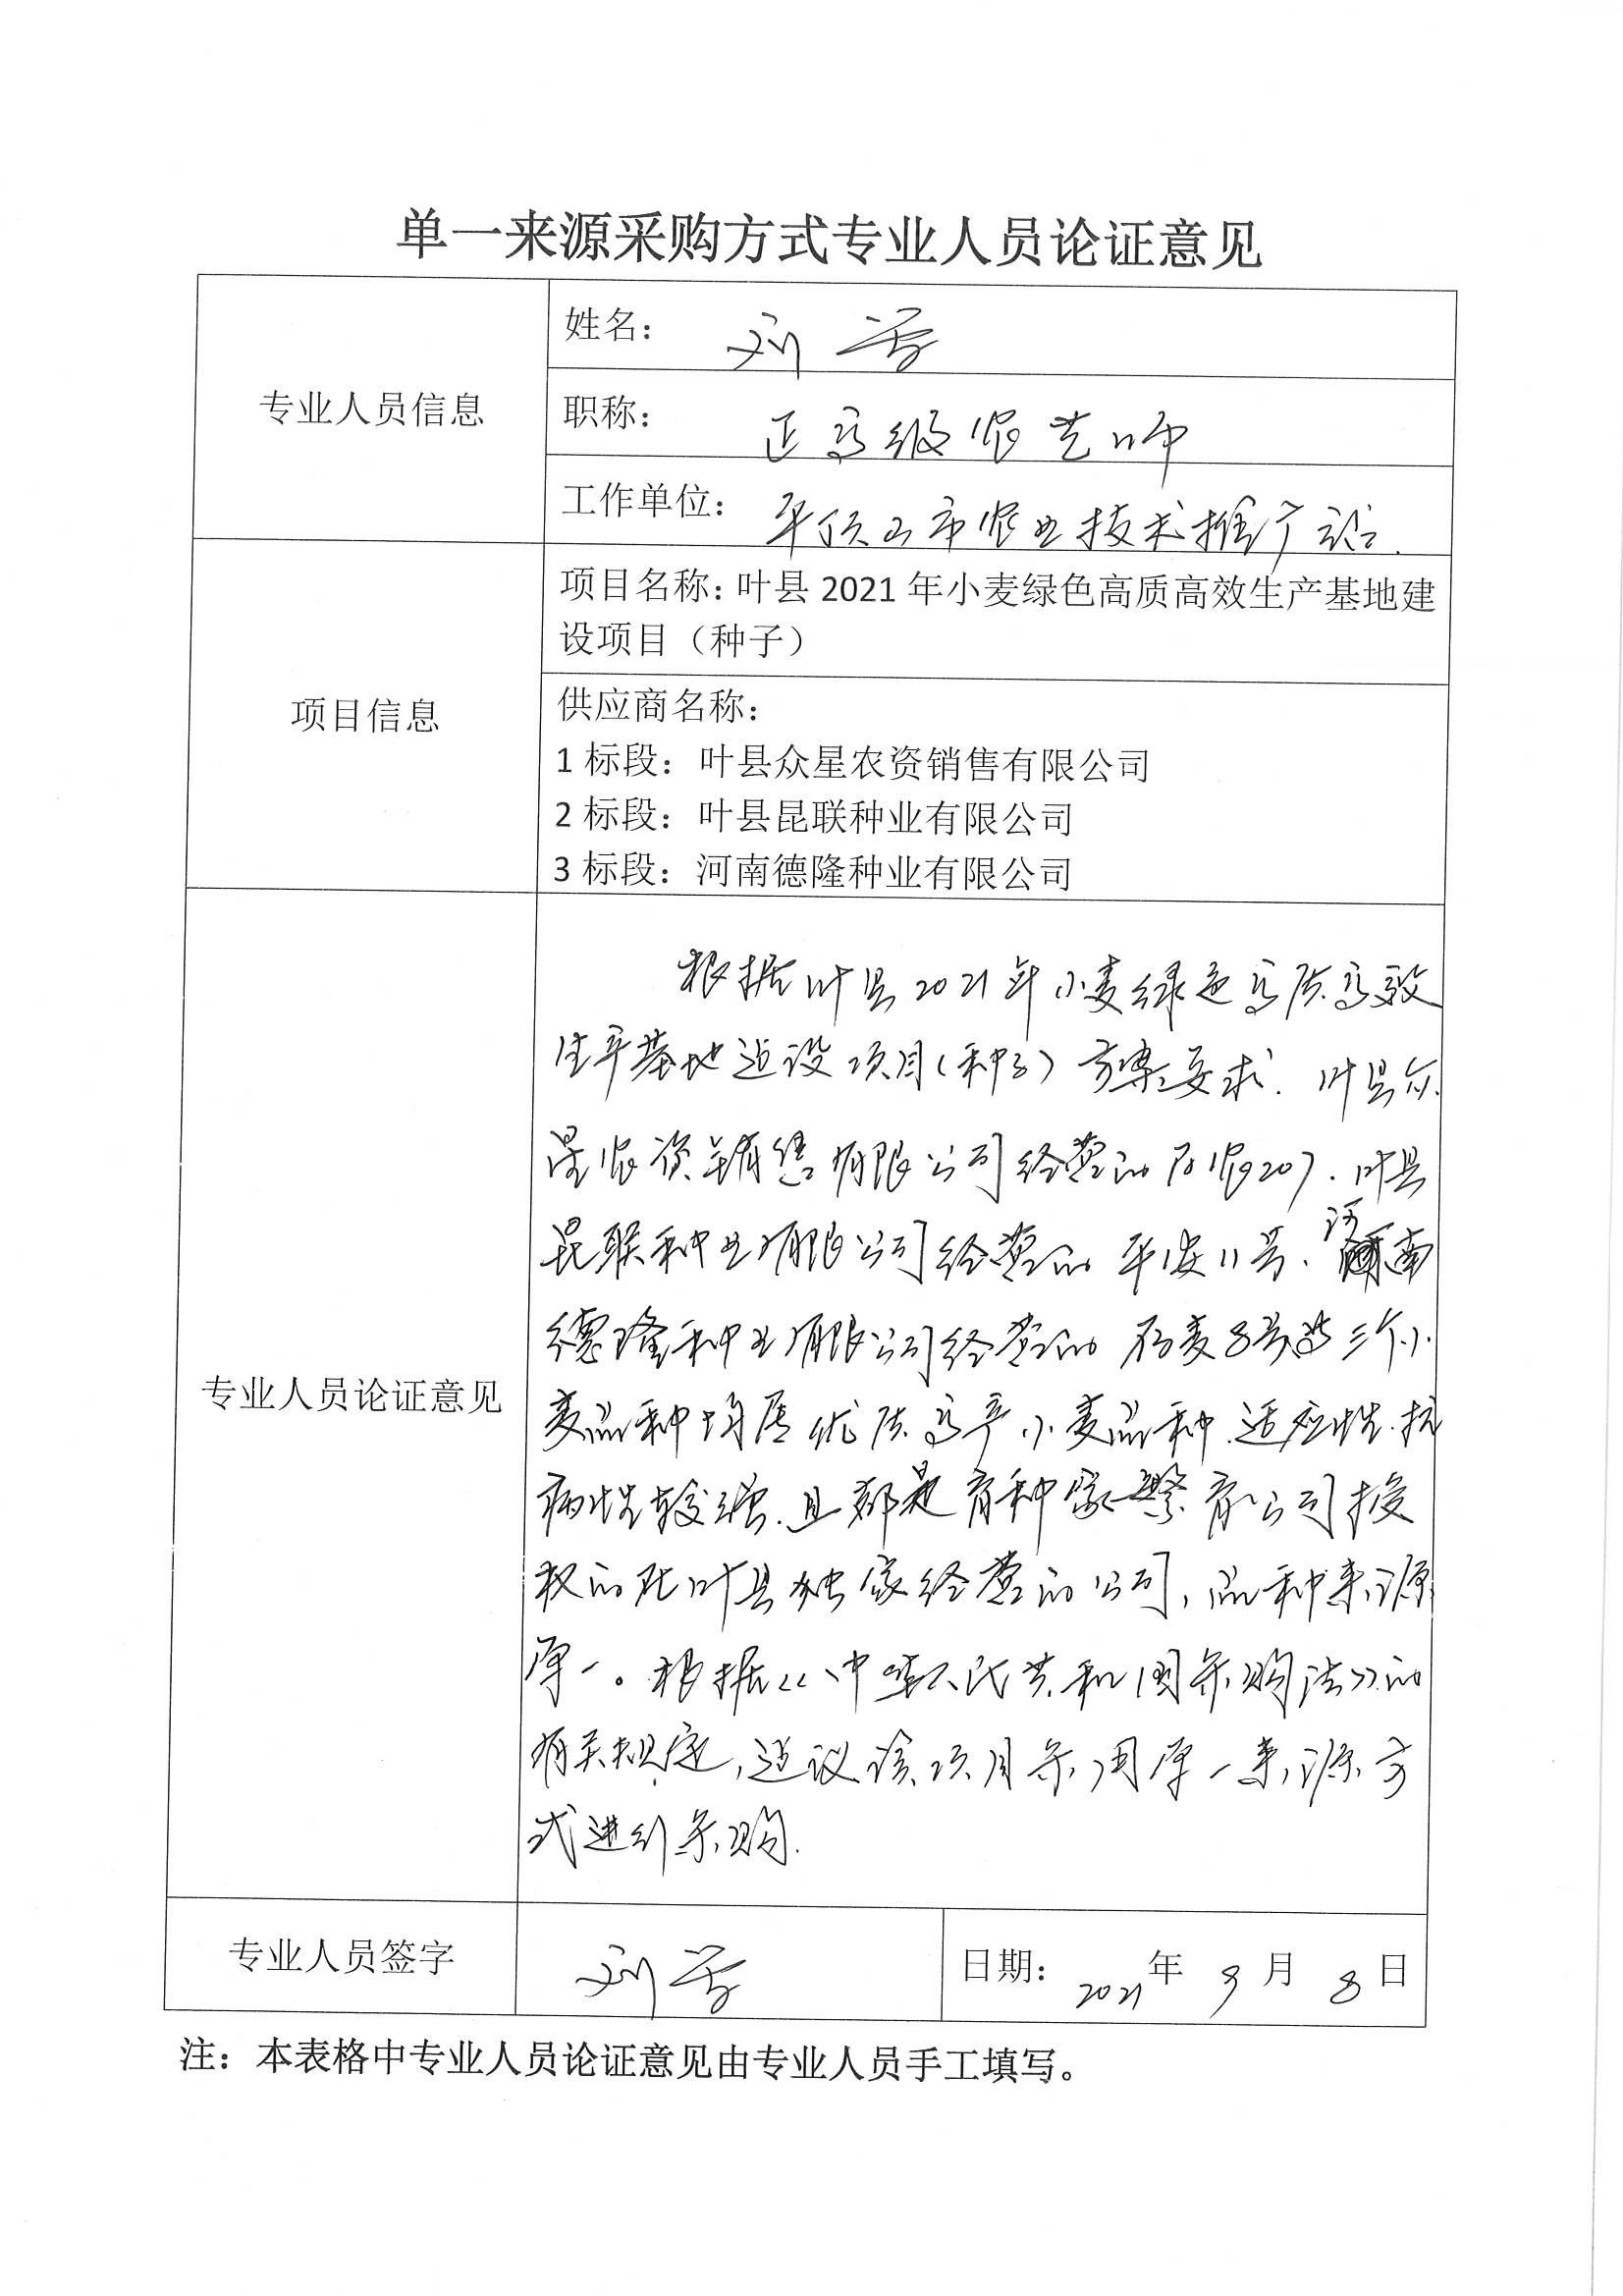 单一来源采购方式专业人员论证意见
专业人员信息
姓名：刘芳
职称：正高级农艺师
工作单位：平顶山市农业技术推广站.
项目信息
项目名称：叶县 2021 年小麦绿色高质高效生产基地建
设项目（种子）
供应商名称：
1 标段：叶县众星农资销售有限公司
2 标段：叶县昆联种业有限公司
3 标段：河南德隆种业有限公司
专业人员论证意见
根据叶县2021年小麦绿色高质高效
生产基地建设项目(种子)方案要求.叶县众
星农资销售有限公司经营的 农207.叶县
昆联种业有限公司经营的平安11号、河南
德隆种业有限公司经营的 麦8号这三个小
麦品种均属优质高产小麦品种.适应性.抗
病性较强.且都是育种家 繁育公司授
权的在叶县独家经营的公司,品种来源
单一。根据《中华人民共和国采购法》的
有关规定,建议该项目采用单一来源方
式进行采购.
专业人员签字
刘芳
日期：2021年9月8日
注：本表格中专业人员论证意见由专业人员手工填写。